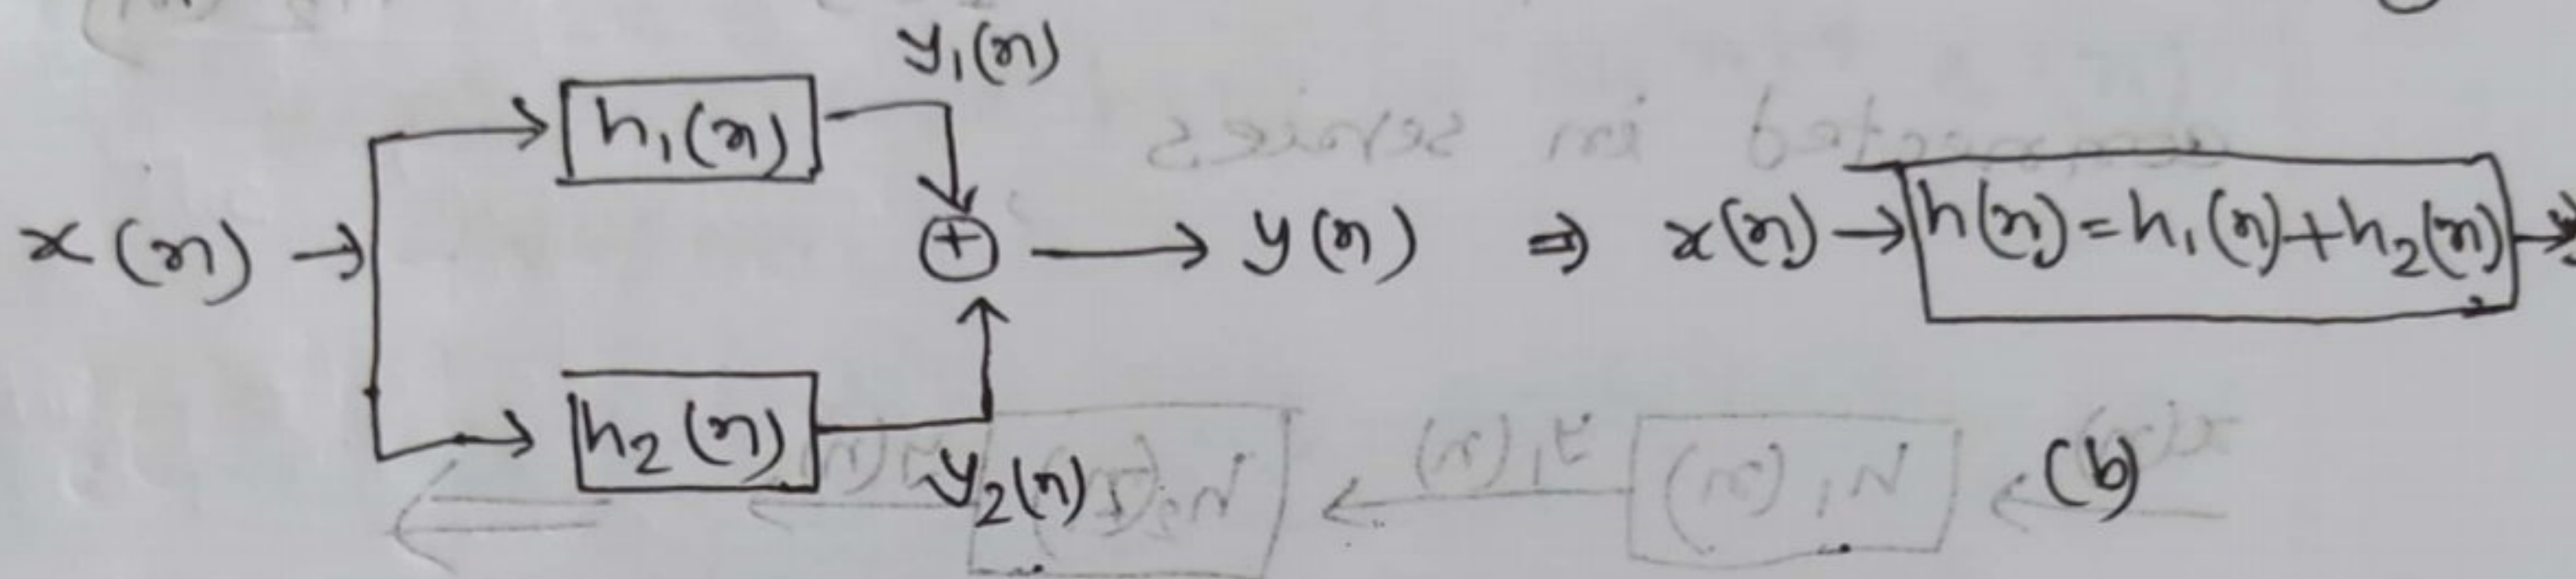 y₁(n)
h₁(n)
x(n) → ⊕ → y(n) ⇒ x(n) → h(n)=h₁(n)+h₂(n) →
h₂(n)
y₂(n)
(b)